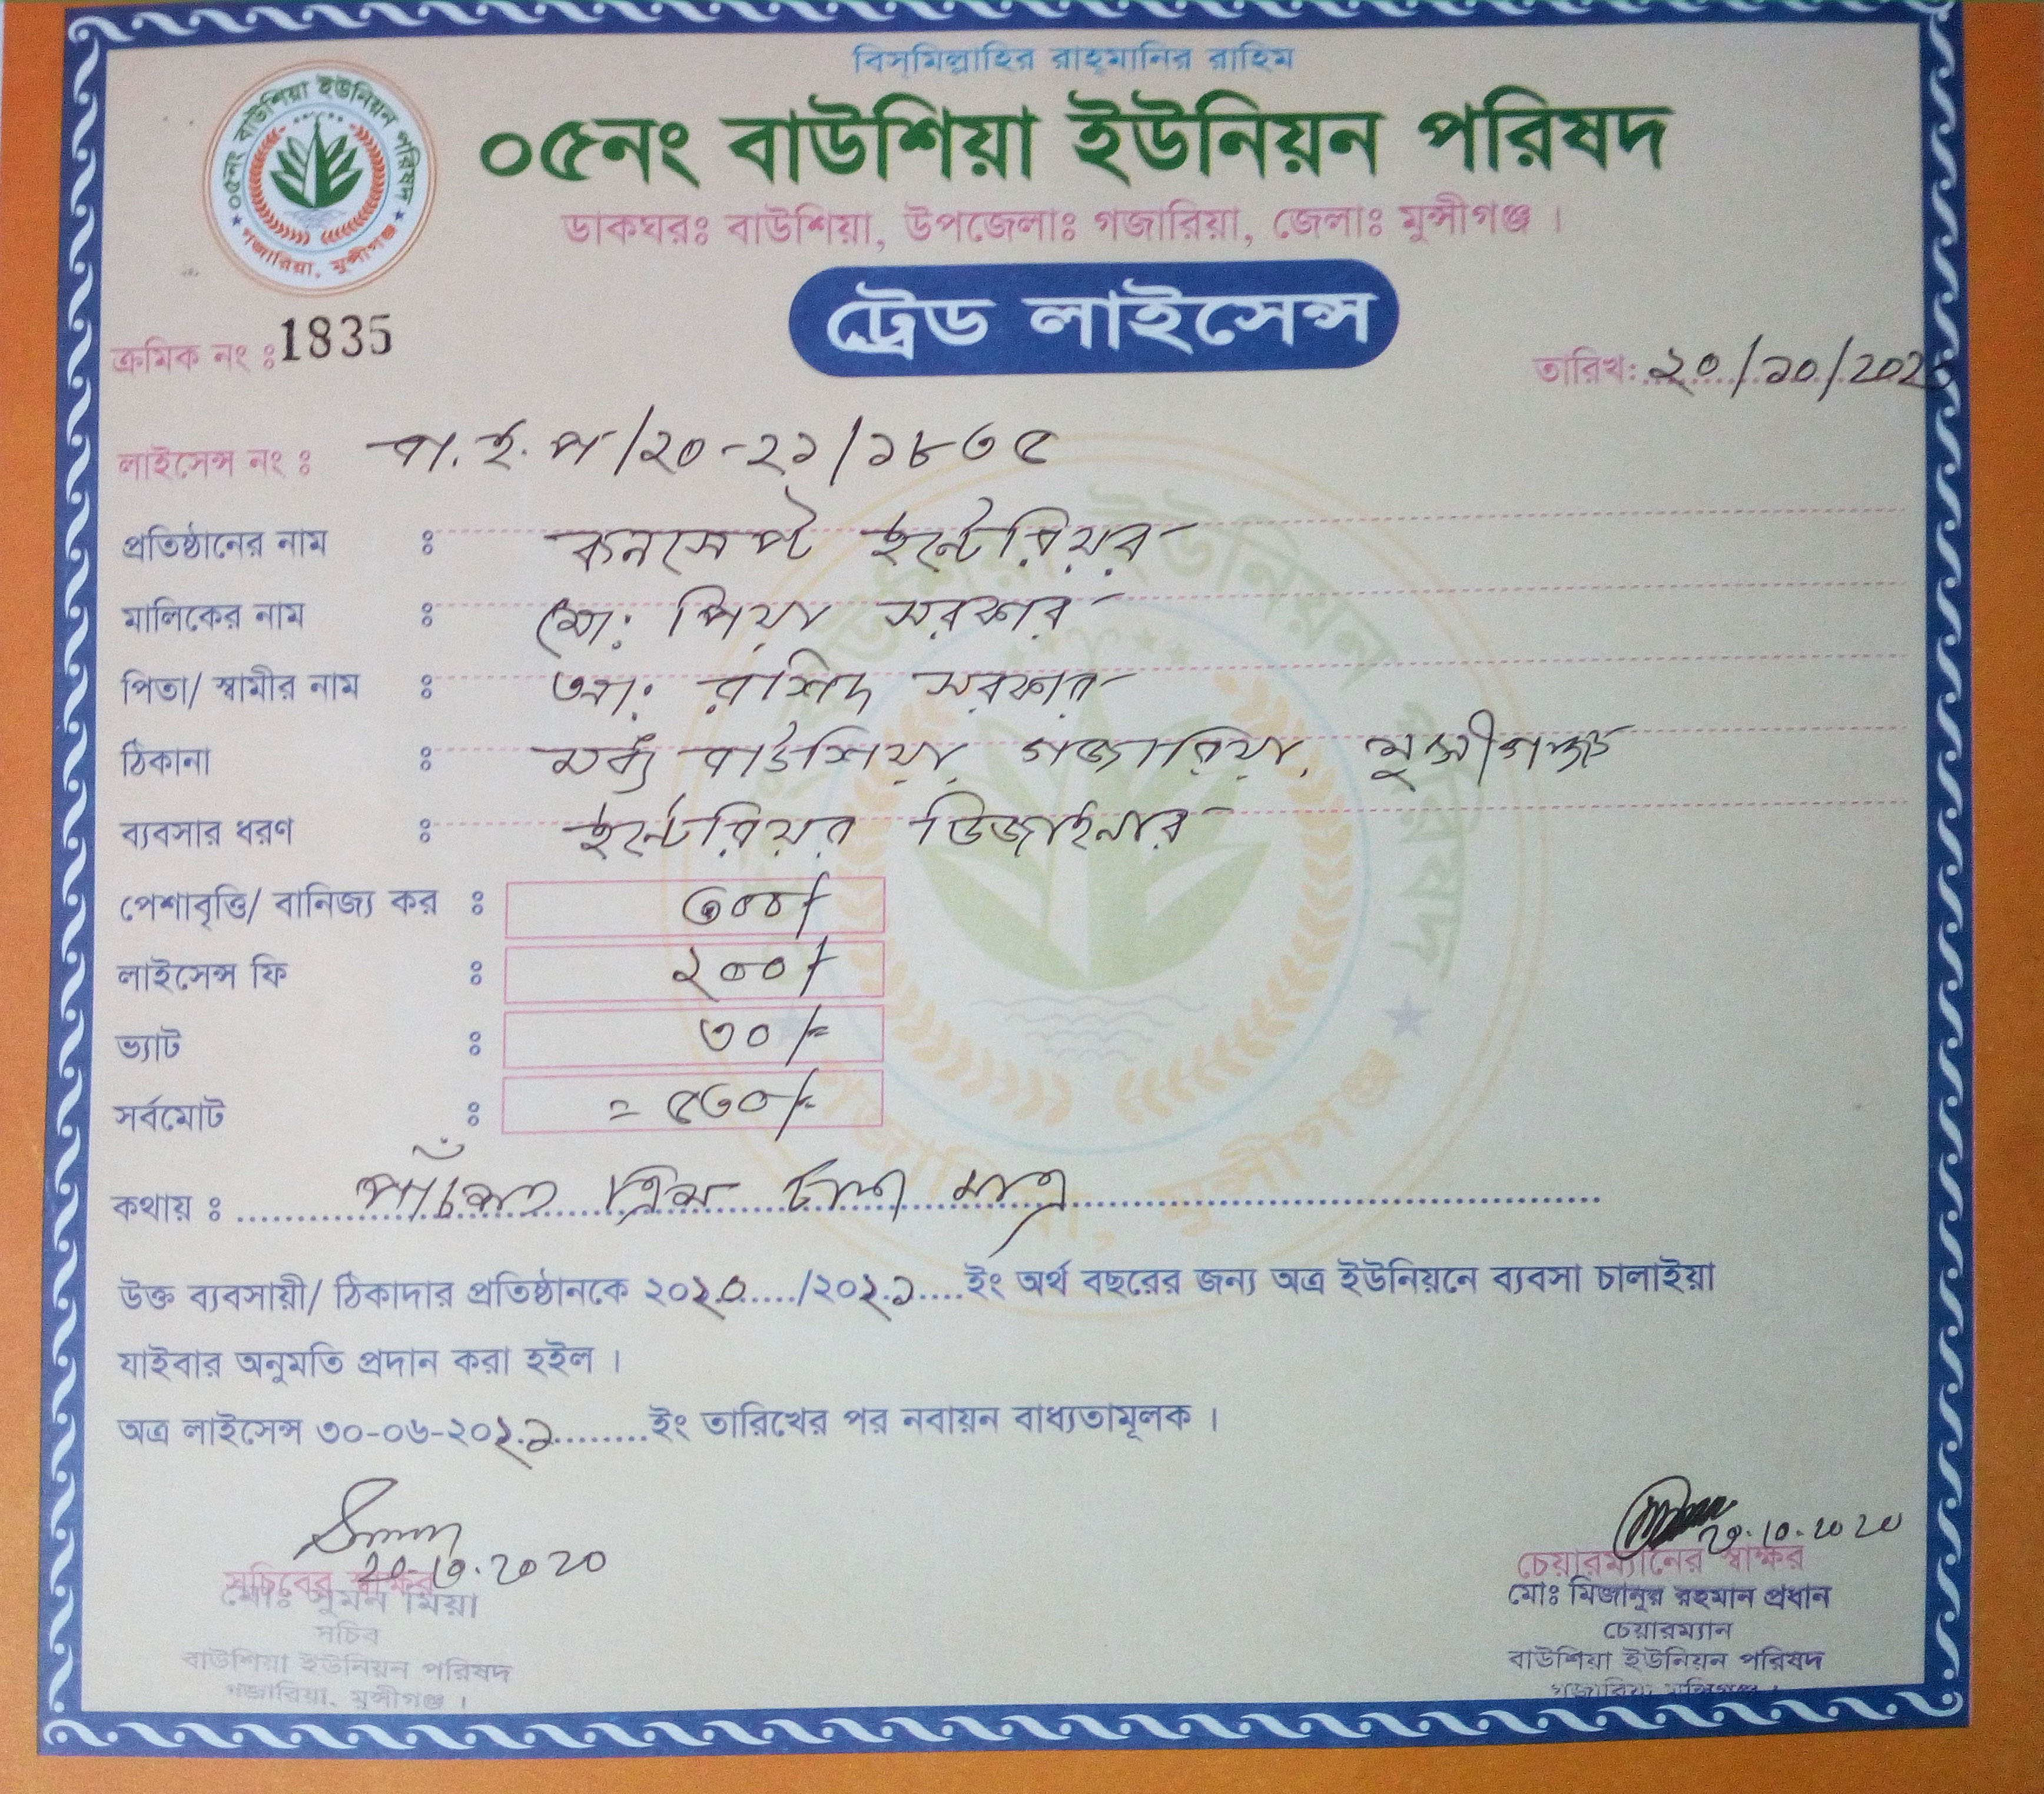 বিস্‌মিল্লাহির রাহ্‌মানির রাহিম
০৫নং বাউশিয়া ইউনিয়ন পরিষদ
০৫নং বাউশিয়া ইউনিয়ন পরিষদ
গজারিয়া, মুন্সীগঞ্জ
ডাকঘরঃ বাউশিয়া, উপজেলাঃ গজারিয়া, জেলাঃ মুন্সীগঞ্জ ।
ট্রেড লাইসেন্স
ক্রমিক নং ঃ 1835
তারিখ: ২০/১০/202
লাইসেন্স নং ঃ বা.ই.প/২০-২১/১৮৩৫
প্রতিষ্ঠানের নাম ঃ কনসেপ্ট ইন্টেরিয়র
মালিকের নাম ঃ মো: পিয়া সরকার
পিতা/ স্বামীর নাম ঃ আ: রশিদ সরকার
ঠিকানা ঃ মধ্য বাউশিয়া, গজারিয়া, মুন্সীগঞ্জ
ব্যবসার ধরণ ঃ ইন্টেরিয়র ডিজাইনার
পেশাবৃত্তি/ বানিজ্য কর ঃ ৩০০/-
লাইসেন্স ফি ঃ ২০০/-
ভ্যাট ঃ ৩০/=
সর্বমোট ঃ = ৫৩০/=
কথায় ঃ পাঁচশত ত্রিশ টাকা মাত্র
উক্ত ব্যবসায়ী/ ঠিকাদার প্রতিষ্ঠানকে ২০২০...../২০২১....ইং অর্থ বছরের জন্য অত্র ইউনিয়নে ব্যবসা চালাইয়া
যাইবার অনুমতি প্রদান করা হইল ।
অত্র লাইসেন্স ৩০-০৬-২০২১.........ইং তারিখের পর নবায়ন বাধ্যতামূলক ।
20.10.2020
সচিবের স্বাক্ষর
মোঃ সুমন মিয়া
সচিব
বাউশিয়া ইউনিয়ন পরিষদ
গজারিয়া, মুন্সীগঞ্জ ।
20.10.2020
চেয়ারম্যানের স্বাক্ষর
মোঃ মিজানুর রহমান প্রধান
চেয়ারম্যান
বাউশিয়া ইউনিয়ন পরিষদ